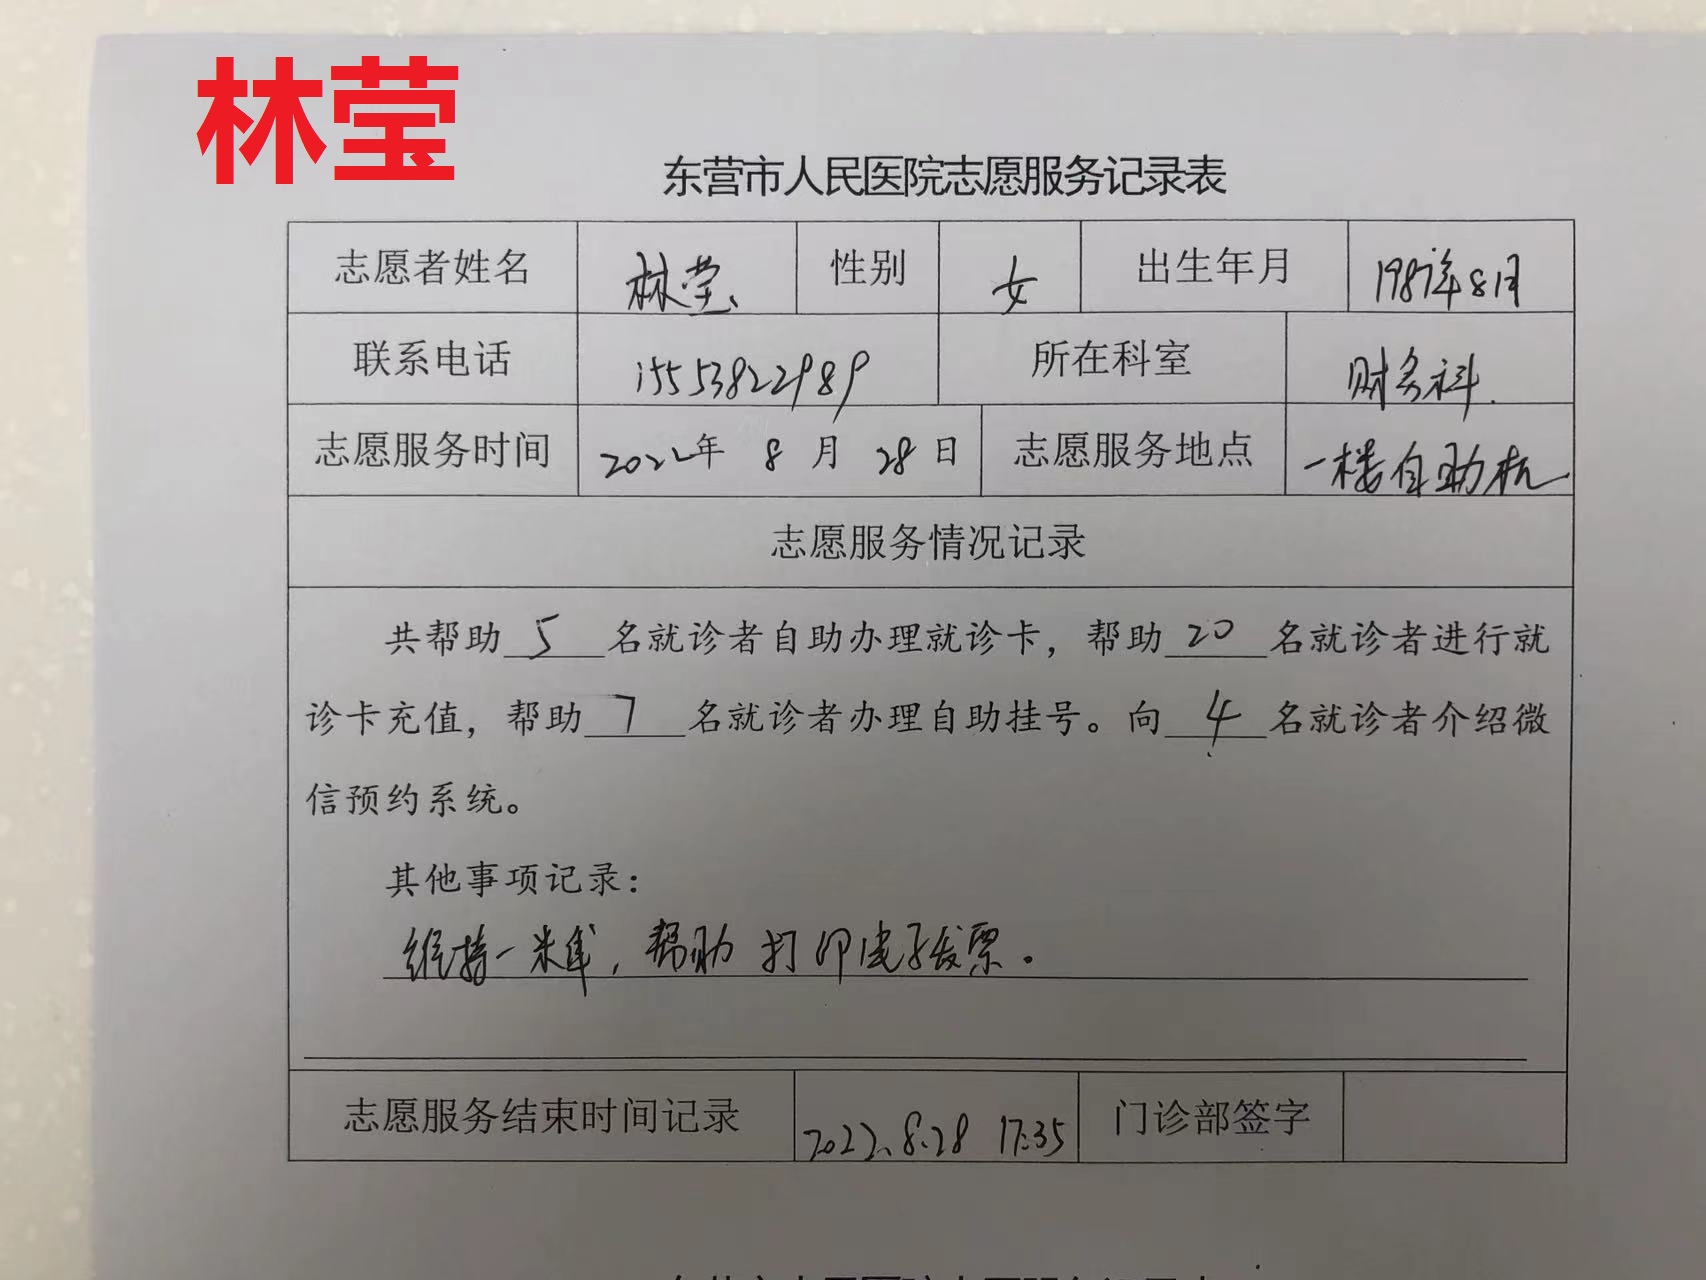 林莹
东营市人民医院志愿服务记录表
志愿者姓名 林莹 性别 女 出生年月 1987年8月
联系电话 15553822989 所在科室 财务科
志愿服务时间 2022年 8 月 28 日 志愿服务地点 一楼自助机
志愿服务情况记录
共帮助 5 名就诊者自助办理就诊卡，帮助 20 名就诊者进行就
诊卡充值，帮助 7 名就诊者办理自助挂号。向 4 名就诊者介绍微
信预约系统。
其他事项记录：
维持一米线，帮助打印电子发票。
志愿服务结束时间记录 2022.8.28 17:35 门诊部签字